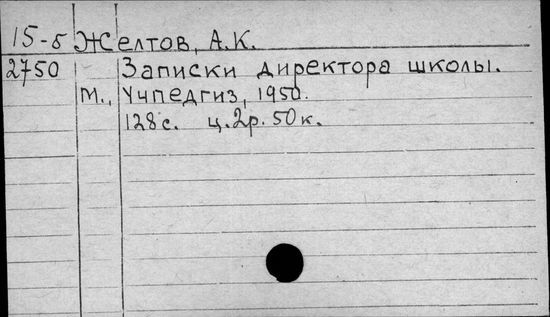 15-5 Желтов, А.К.
2750 Записки директора школы.
М., Учпедгиз, 1950.
128с. ц. 2р. 50к.